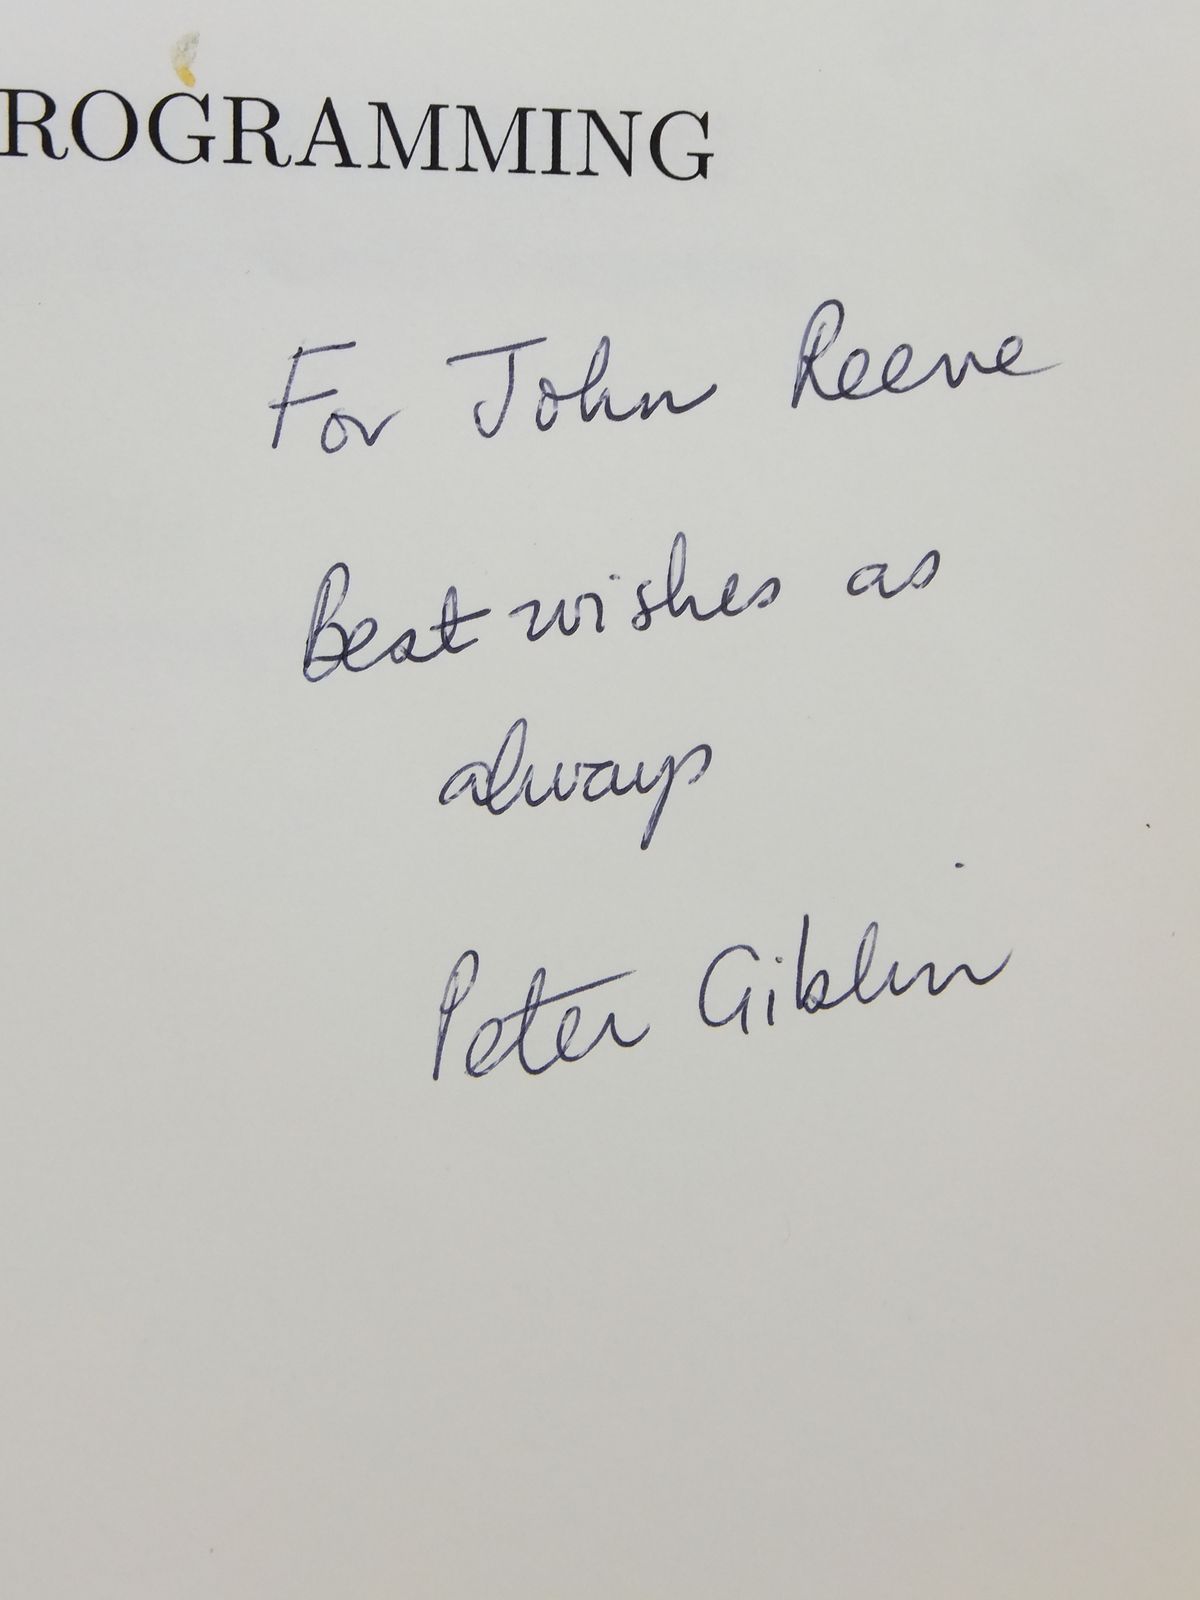 ROGRAMMING
For John Reeve
Best wishes as
always
Peter Giblin